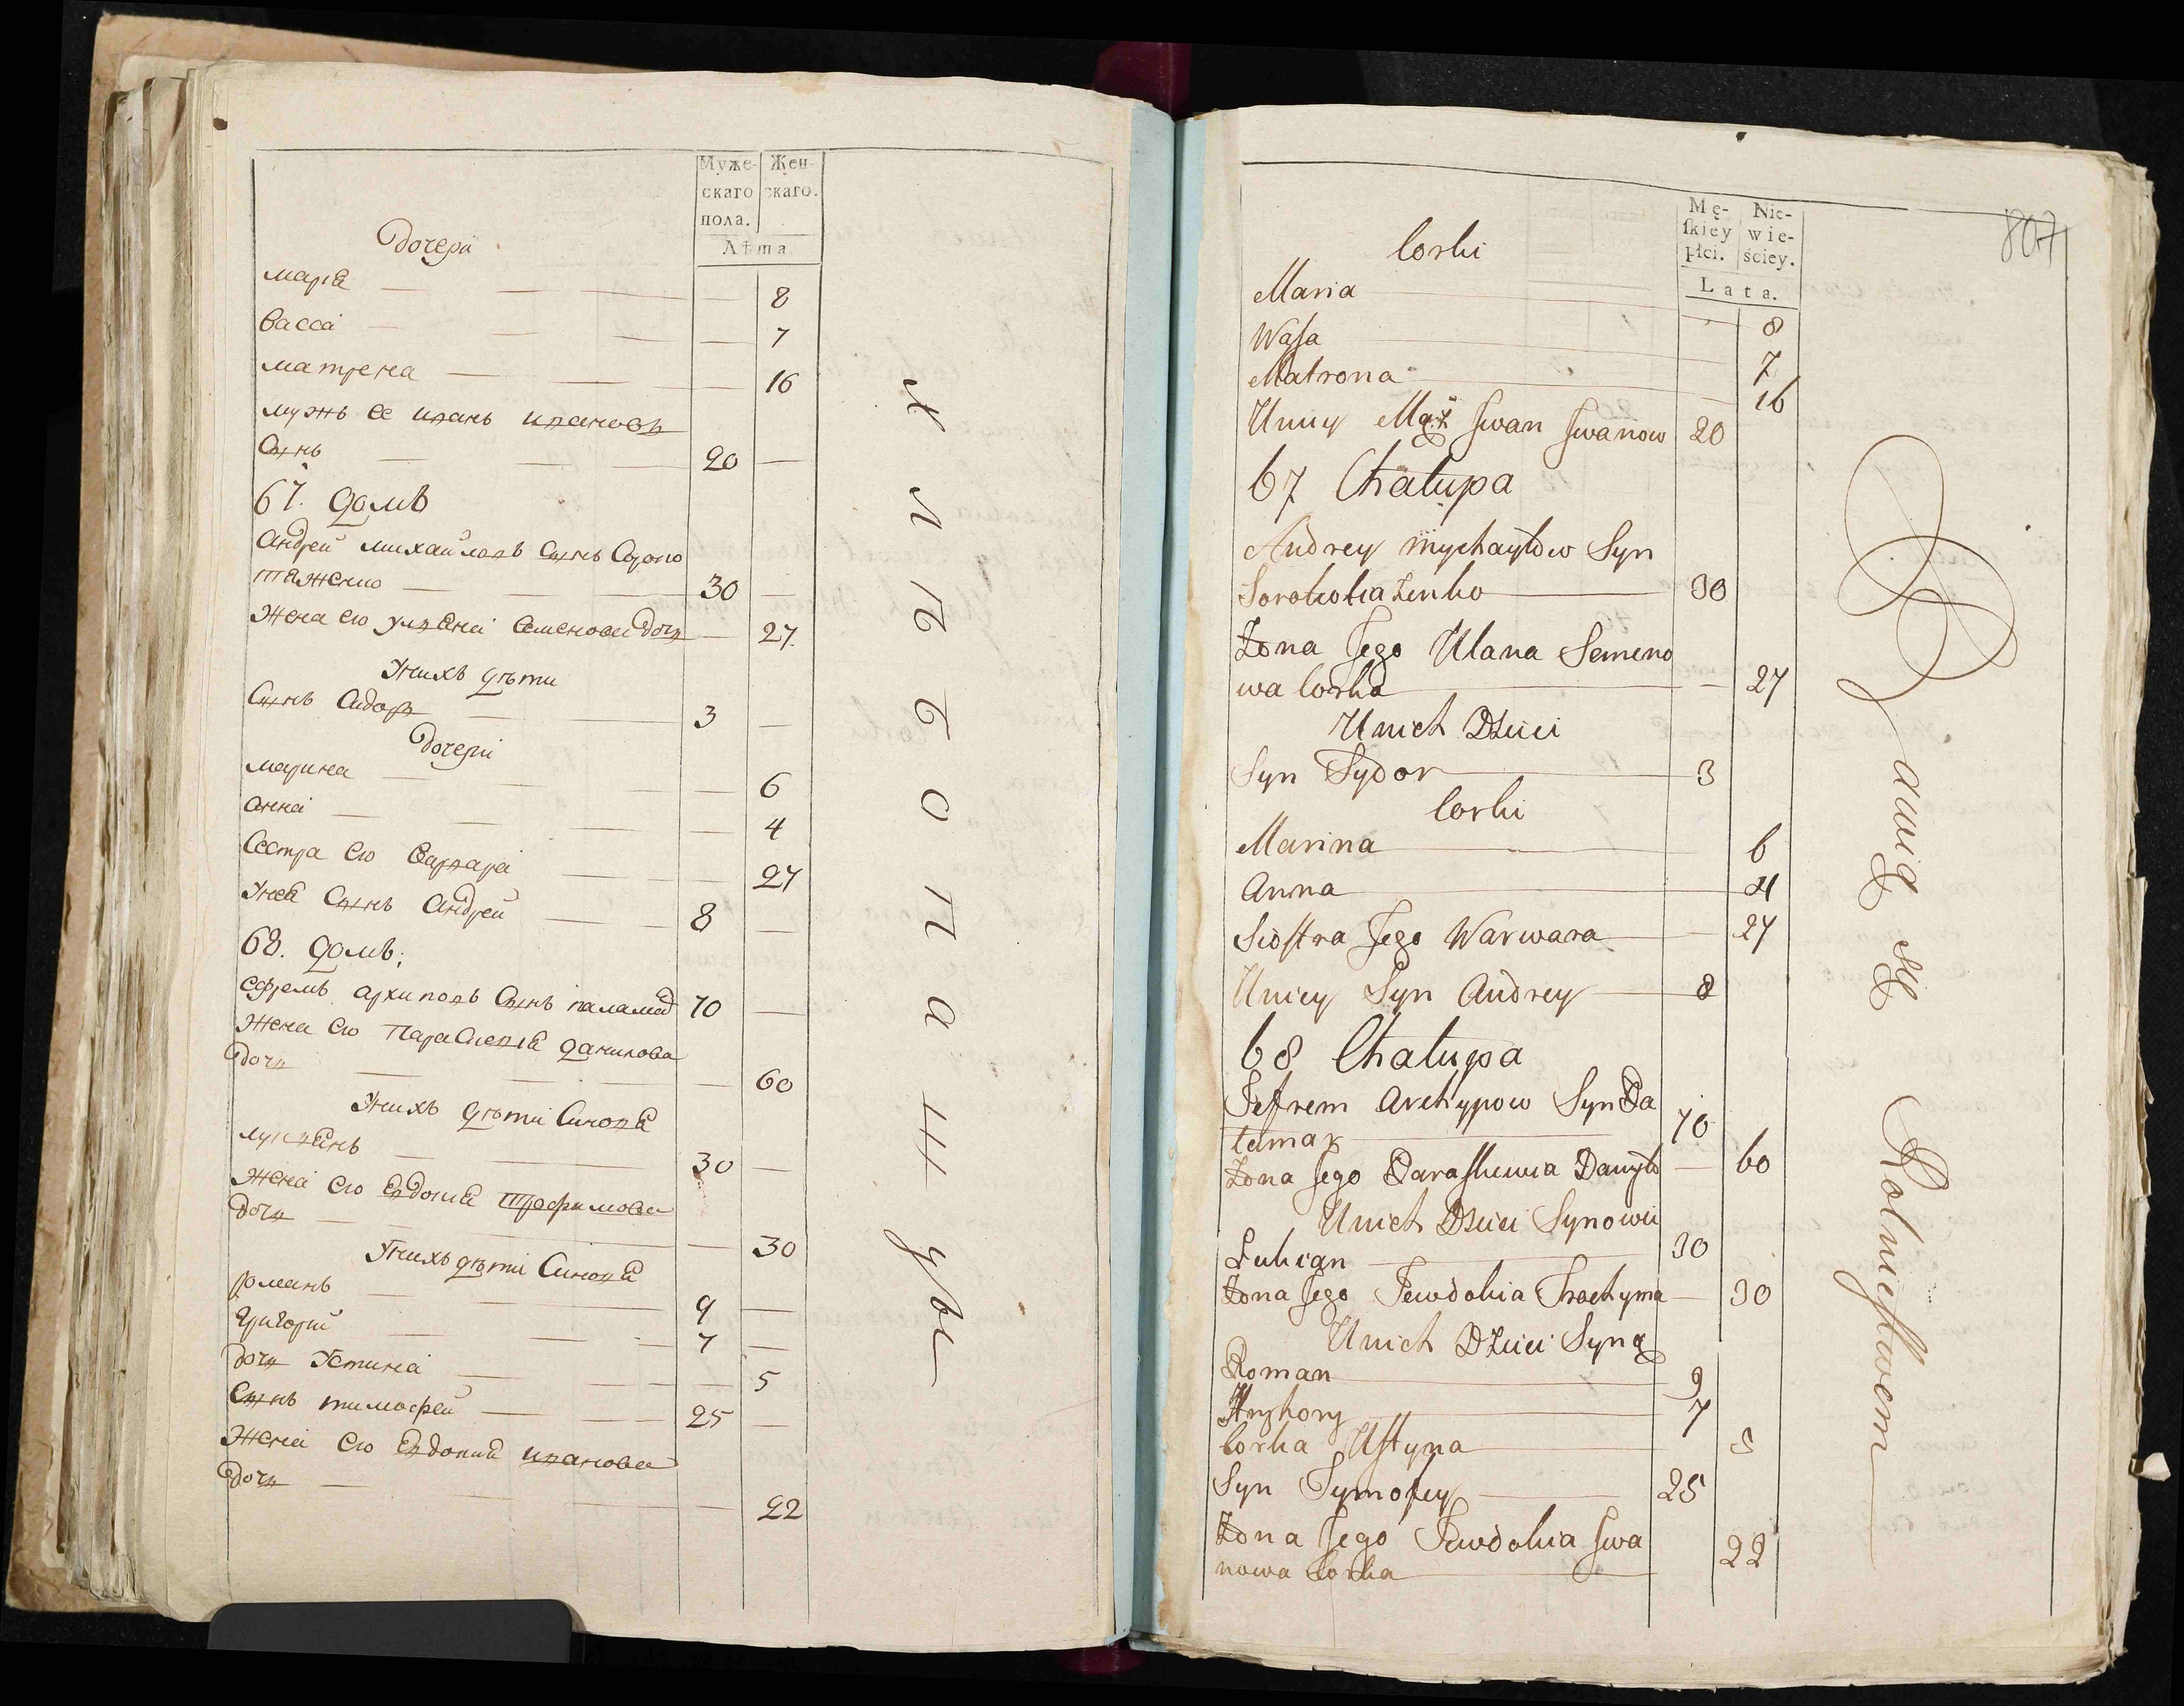 Муже-
скаго
пола.
Жен-
скаго.
Лѣта
дочери
мариѧ — 8
васса — 7
матрена — 16
мужъ ее иванъ ивановъ
сынъ — 20 —
67. домъ
андрей михайловъ сынъ Сороко
тѧженко — 30 —
жена его улꙗна семенова дочь — 27
Унихъ дѣти
Сынъ сидоръ — 3 —
дочери
марина — 6
анна — 4
Сестра его варвара — 27
Унеѧ Сынъ андрей — 8 —
68. домъ:
ефремъ архиповъ Сынъ паламар 70 —
жена его Параскевиѧ данилова
дочь — 60
Унихъ дѣти Синовѧ
лукꙗнъ — 30 —
жена его евдокиѧ трофимова
дочь — 30
Унихъ дѣти Синовѧ
романъ — 9 —
григорий — 7 —
дочь Устина — 5
Сынъ тимофей — 25 —
жена его евдокиѧ иванова
дочь — 22
хлѣбопашцы
807
Mę-
skiey
płci.
Nie-
wie-
ściey.
Lata.
Corki
Maria — 8
Wasa — 7
Matrona — 16
Uniey Mąż Jwan Jwanow 20
67 Chałupa
Andrey Mychayłow Syn
Sorokotiażenko — 30
Żona Jego Ulana Semeno
wa Corka — 27
Unich Dzieci
Syn Sydor — 3
Corki
Marina — 6
Anna — 4
Siostra Jego Warwara — 27
Uniey Syn Andrey — 8
68 Chałupa
Jefrem Archypow Syn Pa
łamar — 70
Żona Jego Paraskewia Danyło — 60
Unich Dzieci Synowie
Łukian — 30
Żona Jego Jewdokia Trochyma — 30
Unich Dzieci Syny
Roman — 9
Hryhory — 7
Corka Ustyna — 5
Syn Tymofey — 25
Żona Jego Jewdokia Jwa
nowa Corka — 22
Bawią się Rolniestwem